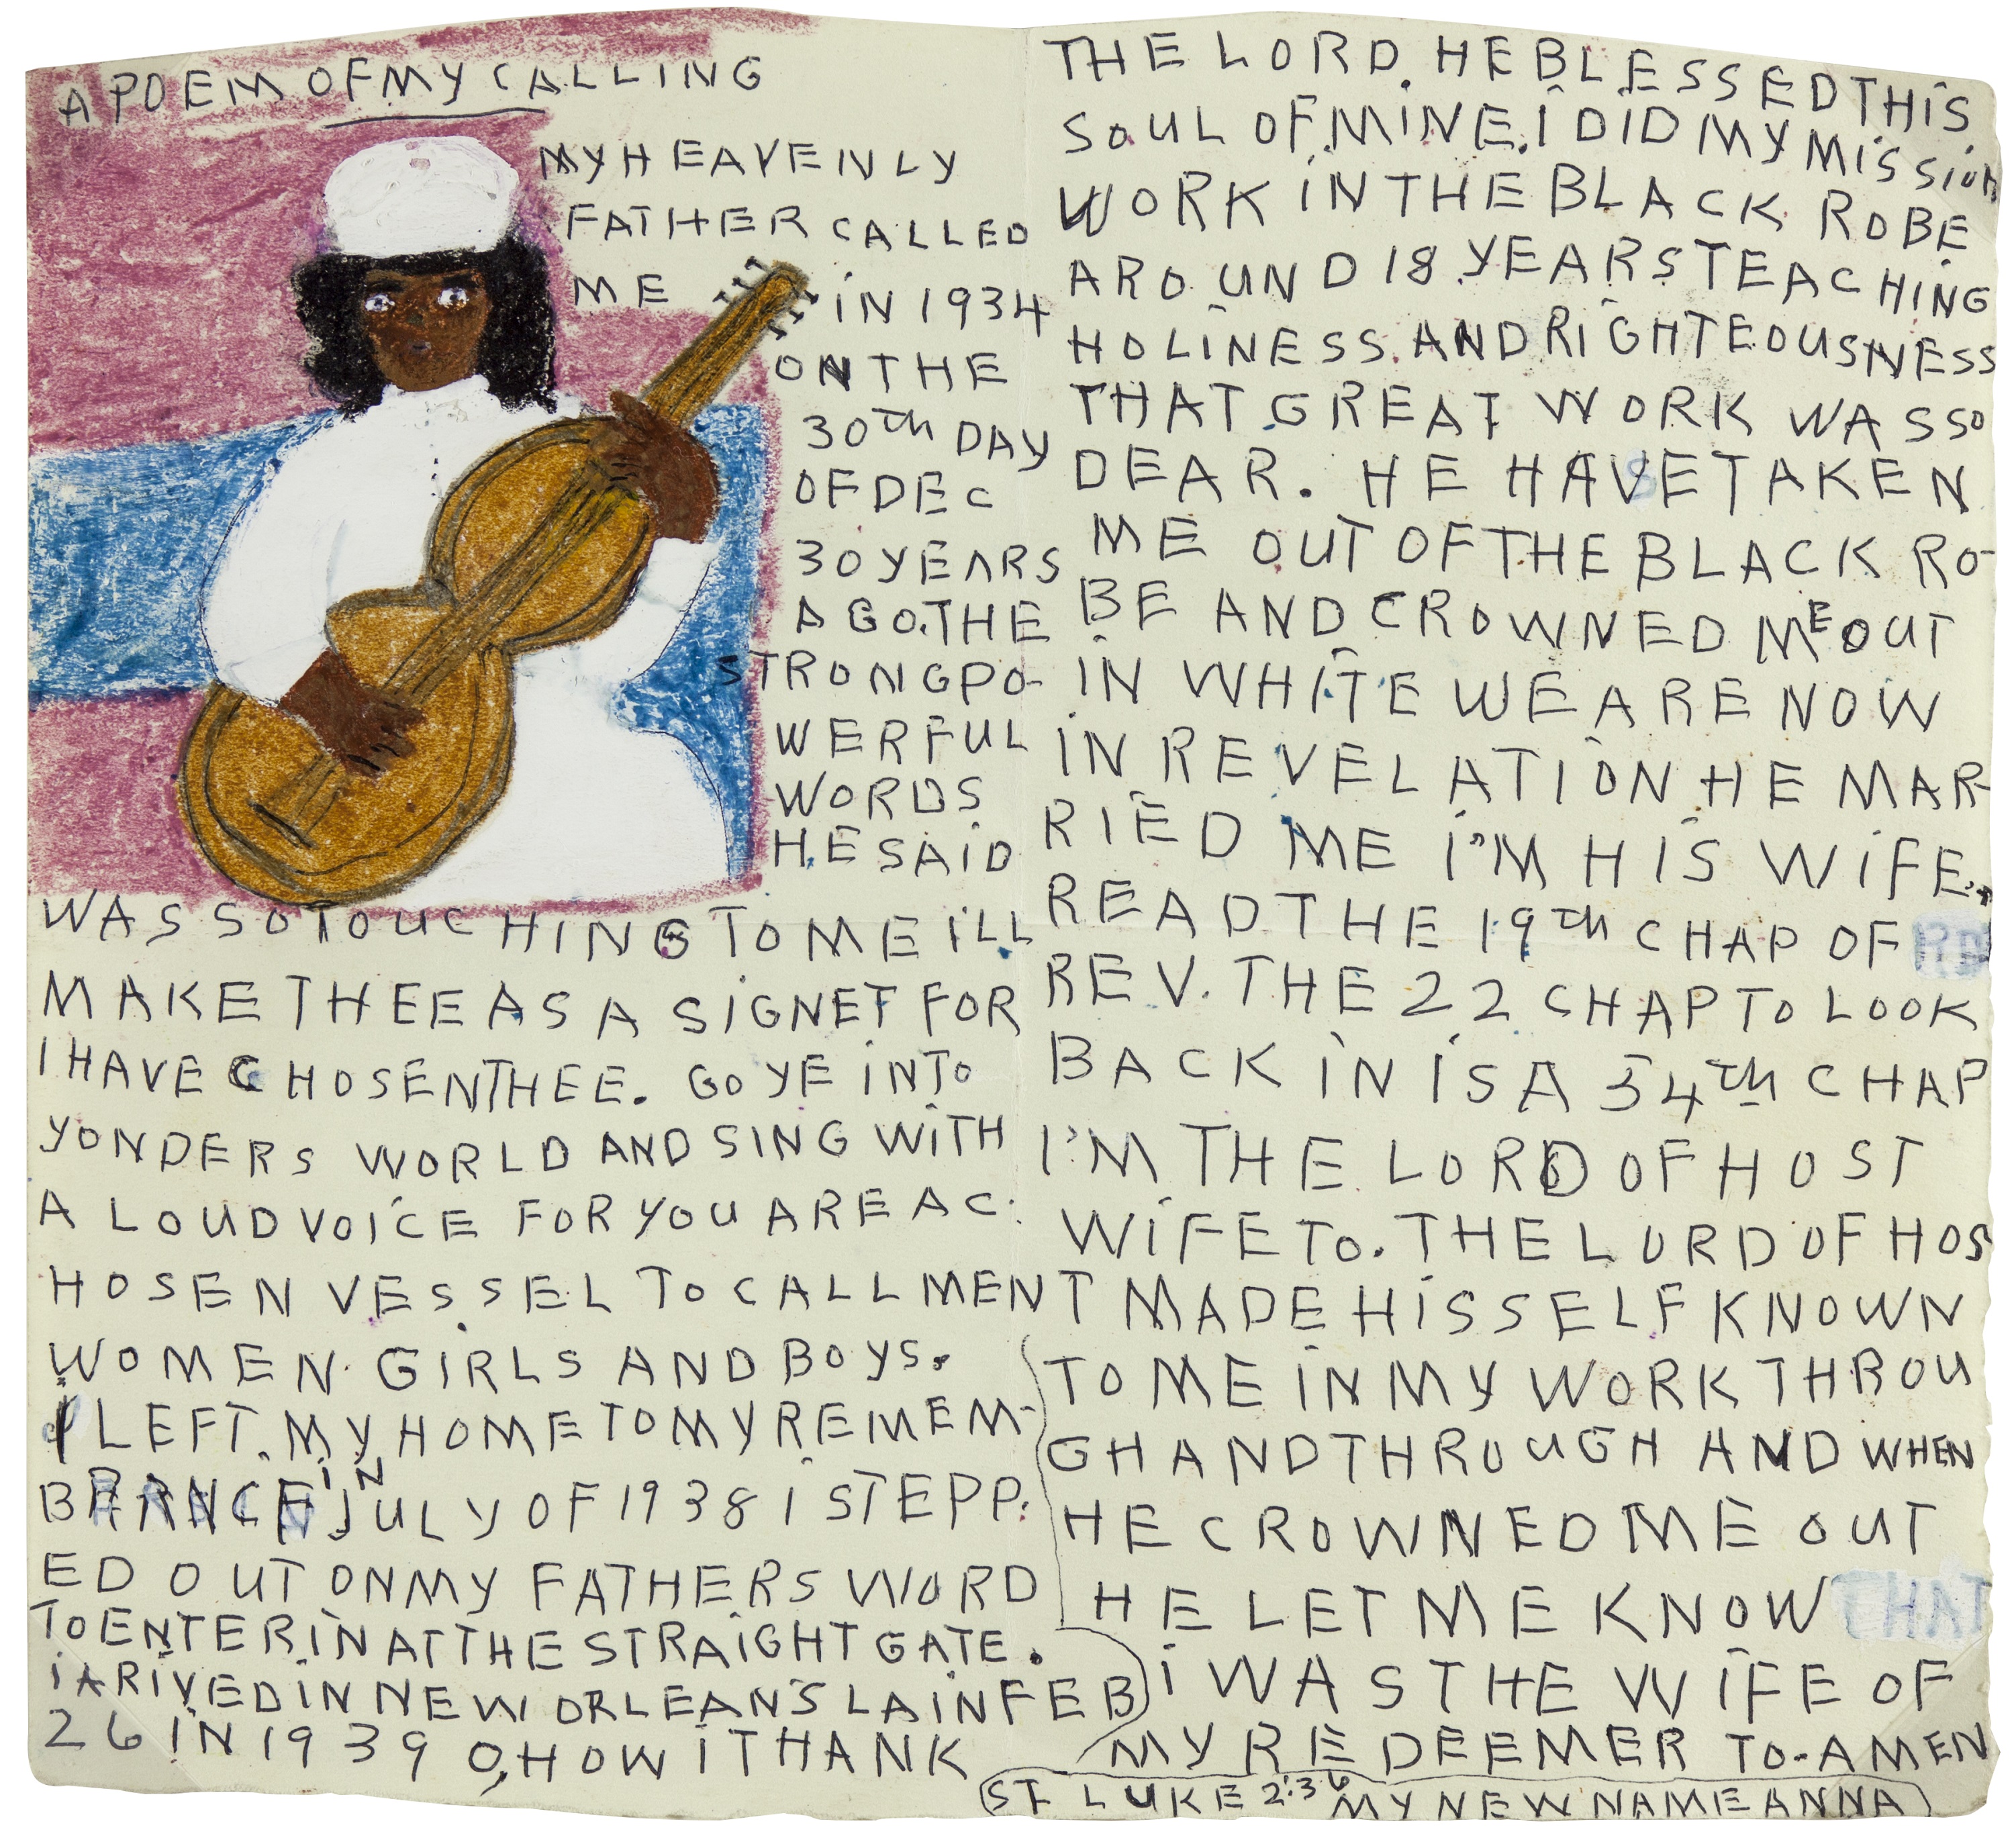 A POEM OF MY CALLING
MY HEAVENLY
FATHER CALLED
ME IN 1934
ON THE
30th DAY
OF DEC
30 YEARS
AGO. THE
STRONG PO-
WERFUL
WORDS
HE SAID
WAS SO TOUCHING TO ME ILL
MAKE THEE AS A SIGNET FOR
I HAVE CHOSEN THEE. GO YE INTO
YONDERS WORLD AND SING WITH
A LOUD VOICE FOR YOU ARE A C:
HOSEN VESSEL TO CALL MEN
WOMEN GIRLS AND BOYS.
I LEFT MY HOME TO MY REMEM-
BRANCE IN JULY OF 1938 I STEPP:
ED OUT ON MY FATHERS WORD
TO ENTER IN AT THE STRAIGHT GATE.
I ARIVED IN NEW ORLEANS LA IN FEB
26 IN 1939 O, HOW I THANK
THE LORD. HE BLESSED THIS
SOUL OF MINE. I DID MY MISSION
WORK IN THE BLACK ROBE
AROUND 18 YEARS TEACHING
HOLINESS AND RIGHTEOUSNESS
THAT GREAT WORK WAS SO
DEAR. HE HAVE TAKEN
ME OUT OF THE BLACK RO-
BE AND CROWNED ME OUT
IN WHITE WE ARE NOW
IN REVELATION HE MAR-
RIED ME I'M HIS WIFE.
READ THE 19th CHAP OF
REV. THE 22 CHAP TO LOOK
BACK IN ISA 54th CHAP
I'M THE LORD OF HOST
WIFE TO. THE LORD OF HOS
T MADE HISSELF KNOWN
TO ME IN MY WORK THROU
GH AND THROUGH AND WHEN
HE CROWNED ME OUT
HE LET ME KNOW THAT
I WAS THE WIFE OF
MY REDEEMER TO-AMEN
ST LUKE 2:36 MY NEW NAME ANNA